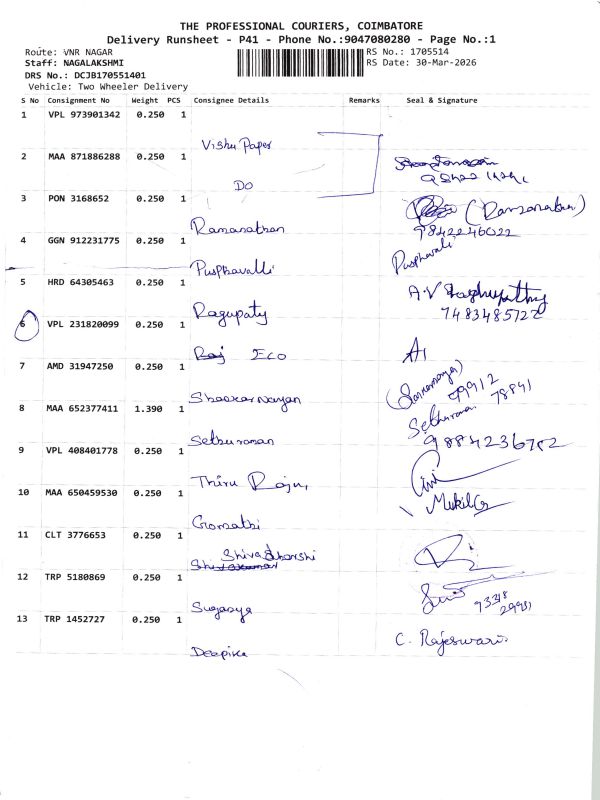 THE PROFESSIONAL COURIERS, COIMBATORE
Delivery Runsheet - P41 - Phone No.:9047080280 - Page No.:1
Route: VNR NAGAR RS No.: 1705514
Staff: NAGALAKSHMI RS Date: 30-Mar-2026
DRS No.: DCJB170551401
Vehicle: Two Wheeler Delivery
S No Consignment No Weight PCS Consignee Details Remarks Seal & Signature
1 VPL 973901342 0.250 1
Vishu Paper
2 MAA 871886288 0.250 1
DO
3 PON 3168652 0.250 1
Ramanathan (Ramanathan)
9842246022
4 GGN 912231775 0.250 1
Pusphavalli Pusphavalli
5 HRD 64305463 0.250 1
Ragupaty A.V Raghupathy
7483485722
6 VPL 231820099 0.250 1
Raj ECO
7 AMD 31947250 0.250 1
79912
78841
8 MAA 652377411 1.390 1
Sethuraman Sethuraman
9884236762
9 VPL 408401778 0.250 1
Thiru Raju
10 MAA 650459530 0.250 1
Gomathi Mukil
11 CLT 3776653 0.250 1
Shivadharshi
Shivakumar
12 TRP 5180869 0.250 1
Suganya
13 TRP 1452727 0.250 1
Deepika C. Rajeswari